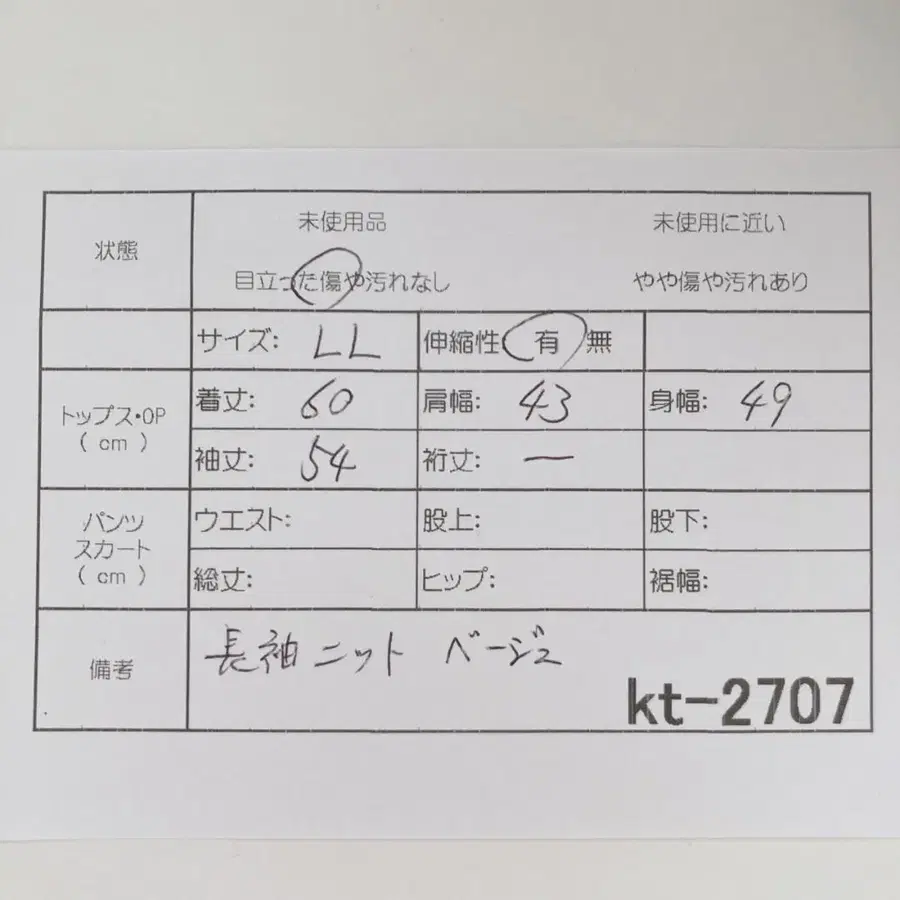 状態
未使用品 未使用に近い
目立った傷や汚れなし やや傷や汚れあり
サイズ: LL 伸縮性 有 無
トップス・OP
( cm )
着丈: 60 肩幅: 43 身幅: 49
袖丈: 54 裄丈: ー
パンツ
スカート
( cm )
ウエスト: 股上: 股下:
総丈: ヒップ: 裾幅:
備考
長袖ニット ベージュ
kt-2707